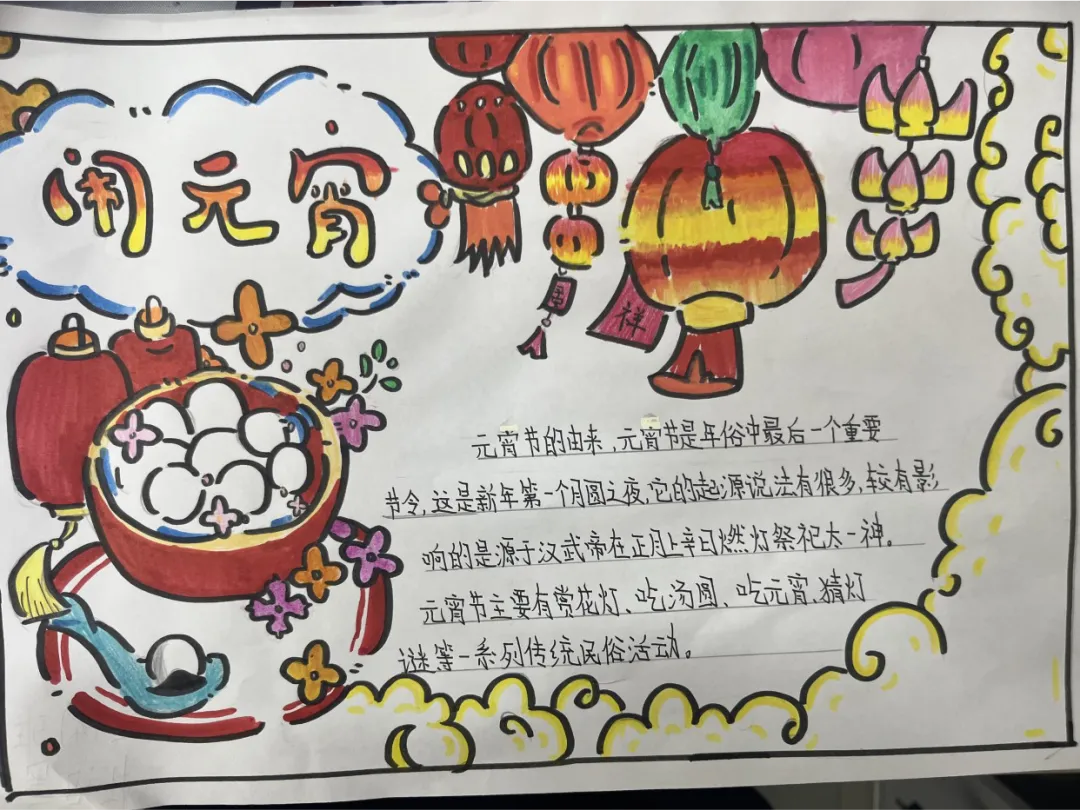 闹元宵
祥
元宵节的由来，元宵节是年俗中最后一个重要
节令，这是新年第一个月圆之夜，它的起源说法有很多，较有影
响的是源于汉武帝在正月上辛日燃灯祭祀太一神。
元宵节主要有赏花灯、吃汤圆、吃元宵、猜灯
谜等一系列传统民俗活动。